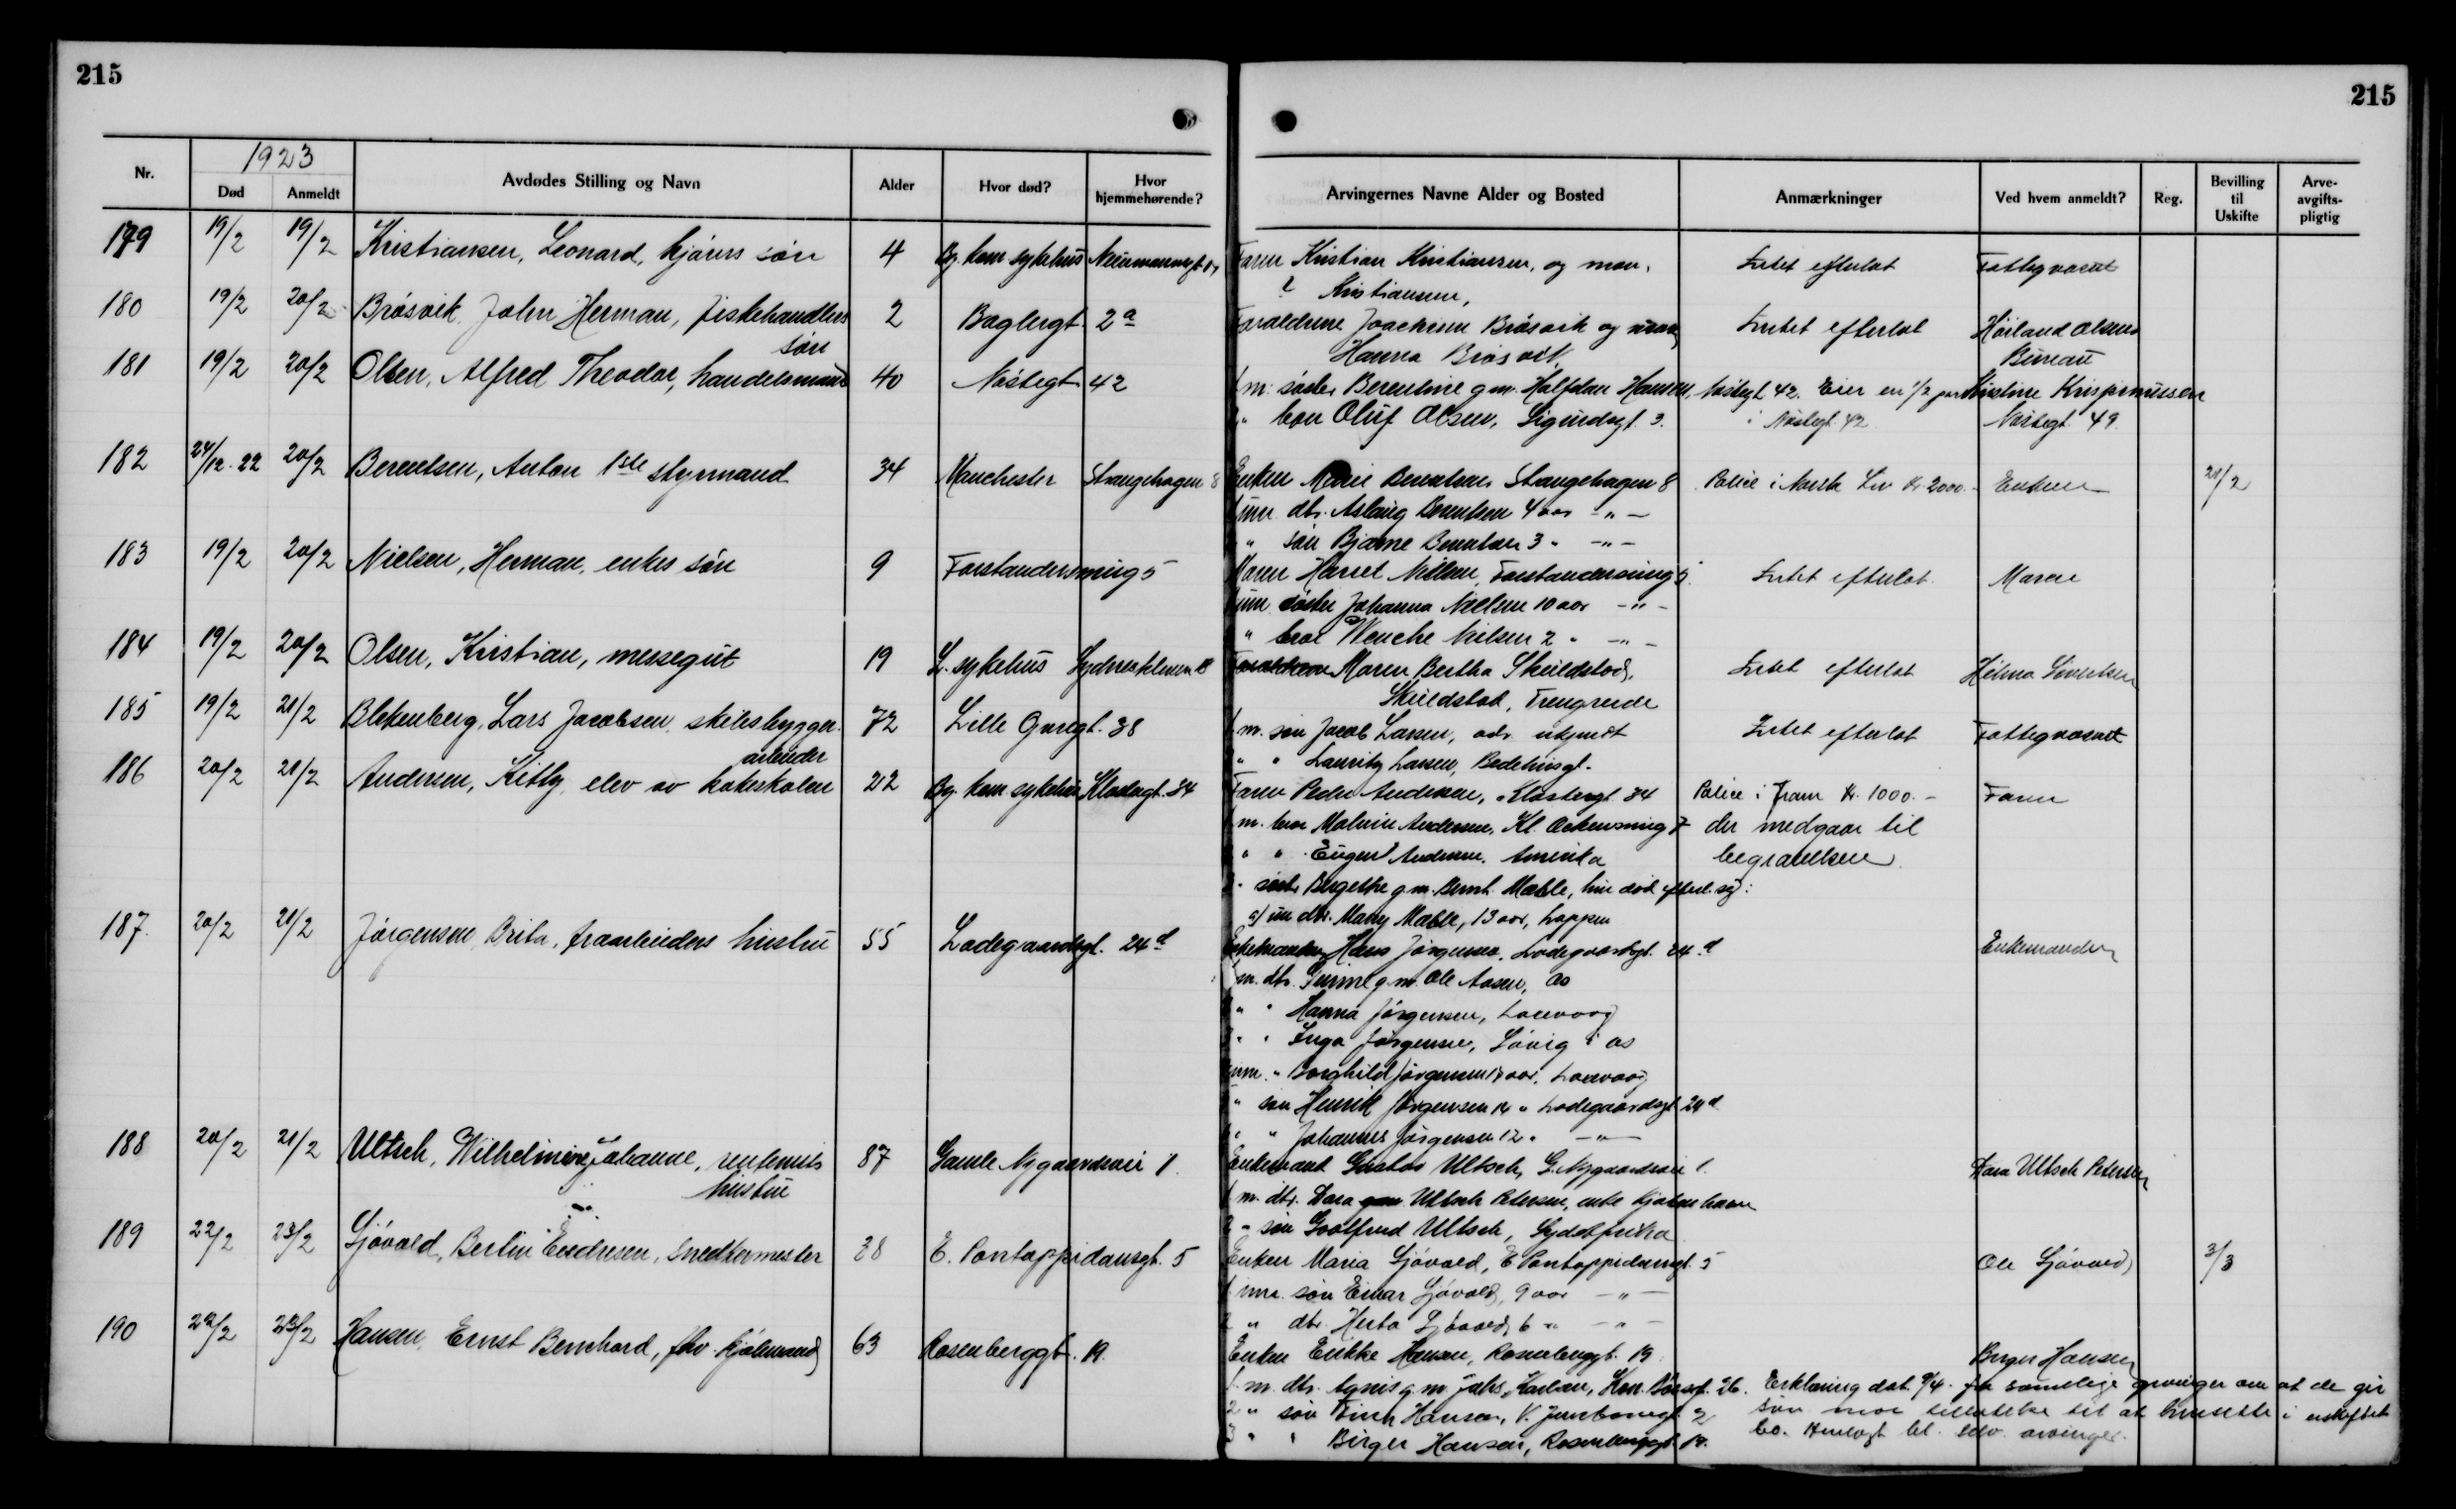 215
215
1923
Nr.
Død
Anmeldt
Avdødes Stilling og Navn
Alder
Hvor død?
Hvor hjemmehørende?
Arvingernes Navne Alder og Bosted
Anmærkninger
Ved hvem anmeldt?
Reg.
Bevilling til Uskifte
Arve-avgifts-pligtig
179 19/2 19/2 Kristiansen, Leonard, søn 4 Bg. kom. sykehus Faren Kristian Kristiansen, og mor, Intet efterlat Fattigvæsnet
? Kristiansen,
180 19/2 20/2 Brøsvik, John Herman, fiskehandlers 2 Baglergt. 2a Forældrene Joachim Brøsvik og Intet efterlat Høiland Olsens
søn Hanna Brøsvik Bureau
181 19/2 20/2 Olsen, Alfred Theodor, handelsmand 40 Nøstegt 42 1 m. søster Berentine g.m. Halfdan Hansen, Nøstegt 42. Eier en 1/2 Kristine
2 " bror Oluf Olsen, Sigurdsgt. 3. i Nøstegt. 42 Nøstegt 49.
182 24/12.22 20/2 Berentsen, Anton 1ste styrmand 34 Manchester Strangehagen 8 Enken Marie Berentsen Strangehagen 8 Police i Norsk Liv Kr. 2000.- Enken 21/2
1 um. dtr. Aslaug Berentsen 4 aar -"-
2 " søn Bjarne Berentsen 3 " -"-
183 19/2 20/2 Nielsen, Herman, enkes søn 9 Forstandersmug 5 Moren Harriet Nielsen, Forstandersmug 5 Intet efterlat. Moren
1 um. søster Johanna Nielsen 10 aar -"-
2 " bror Wenche Nielsen 2 " -"-
184 19/2 20/2 Olsen, Kristian, messegut 19 L. sykehus Moren Bertha Skuldstad, Intet efterlat Helma Sivertsen
Skuldstad, Trengereid
185 19/2 21/2 Blekenberg, Lars Jacobsen, skibsbygger 72 Lille 38 1 m. søn Jacob Larsen, adr. ukjendt Intet efterlat Fattigvæsnet
arbeider 2 " " Lauritz Larsen, Bedehusgt.
186 20/2 21/2 Andersen, Kitty, elev av kokeskolen 22 Bg. kom. sykehus Klostergt. 34 Faren Peder Andersen, Klostergt. 34 Police i Fram Kr. 1000.- Faren
1 m. bror Malvin Andersen, Kl. 7 der medgaar til
2 " " Eugen Andersen, Amerika begravelsen
3 " søster Bergethe g.m. Bernt Mæhle, hun død efterl. sig:
a) um dtr. Mary Mæhle, 13 aar, Loppen
187. 20/2 21/2 Jørgensen, Brita, hustru 55 Ladegaardsgt. 24d Enkemanden Hans Jørgensen, Ladegaardsgt. 24d Enkemanden
1 m. dtr. g.m. Ole Aasen, Os
2 " " Hanna Jørgensen,
3 " " Inga Jørgensen, Søvig i Os
4 um. " Borghild Jørgensen 17 aar,
5 " søn Henrik Jørgensen 14 " Ladegaardsgt 24d
6 " " Johannes Jørgensen 12 " -"-
188 20/2 21/2 Ultsch, Wilhelmine Johanne, rentenists 87 Gamle Nygaardsvei 1. Enkemand Gustav Ultsch, G. Nygaardsvei 1. Dara Ultsch Petersen
hustru 1 m. dtr. Dara Ultsch Petersen, enke Kjøbenhavn
2 " søn Gotfred Ultsch, Sydafrika
189 22/2 23/2 Sjøvold, Bertin Endresen, snedkermester 38 E. Pontoppidansgt. 5 Enken Maria Sjøvold, E. Pontoppidansgt. 5 Ole Sjøvold 3/3
1 um. søn Einar Sjøvold, 9 aar -"-
2 " dtr. Herta Sjøvold, 6 " -"-
190 22/2 23/2 Hansen, Ernst Bernhard, fhv. kjøbmand 63 Rosenberggt. 19. Enken Hansen, Rosenberggt. 19. Birger Hansen
1 m. dtr. Agnes g.m. 26. Erklæring dat. 9/4 fra samtlige arvinger om at de gir
2 " søn Finn Hansen, 2 sin mor tillatelse til at hensitte i uskiftet
3 " " Birger Hansen, Rosenberggt. 19. bo. Henlagt bl. edv. arvinger.